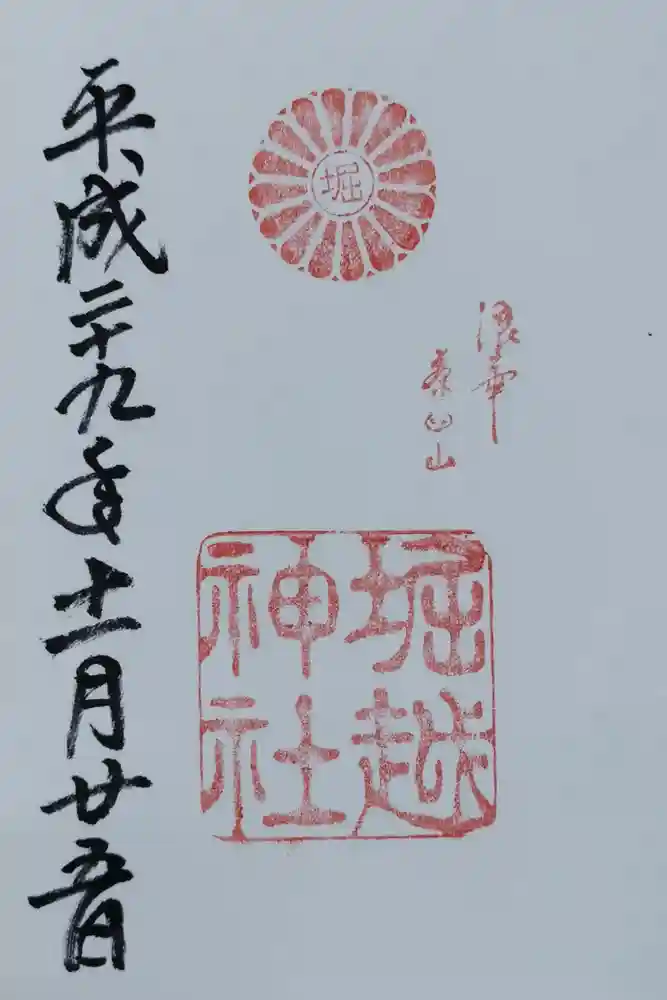 堀
浪華
茶臼山
堀越
神社
平成二十九年十一月廿五日